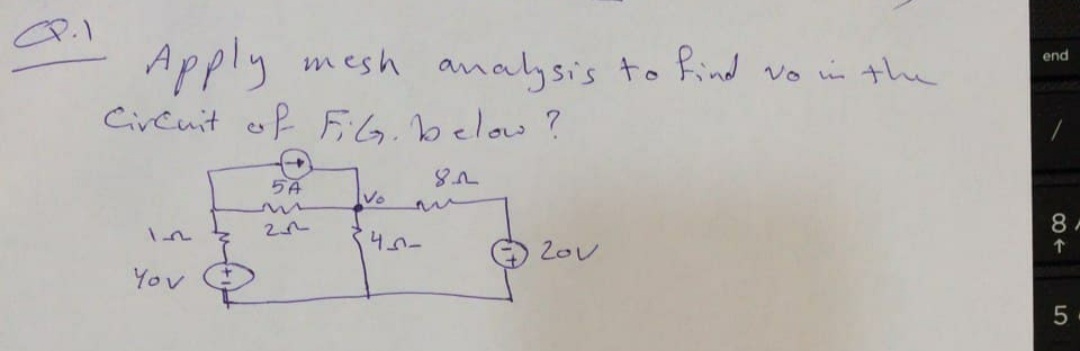 Q.1
Apply mesh analysis to find vo in the
Circuit of FiG. below?
5A
8Ω
Vo
2Ω
1Ω
4Ω
20V
40V
end
/
8
↑
5